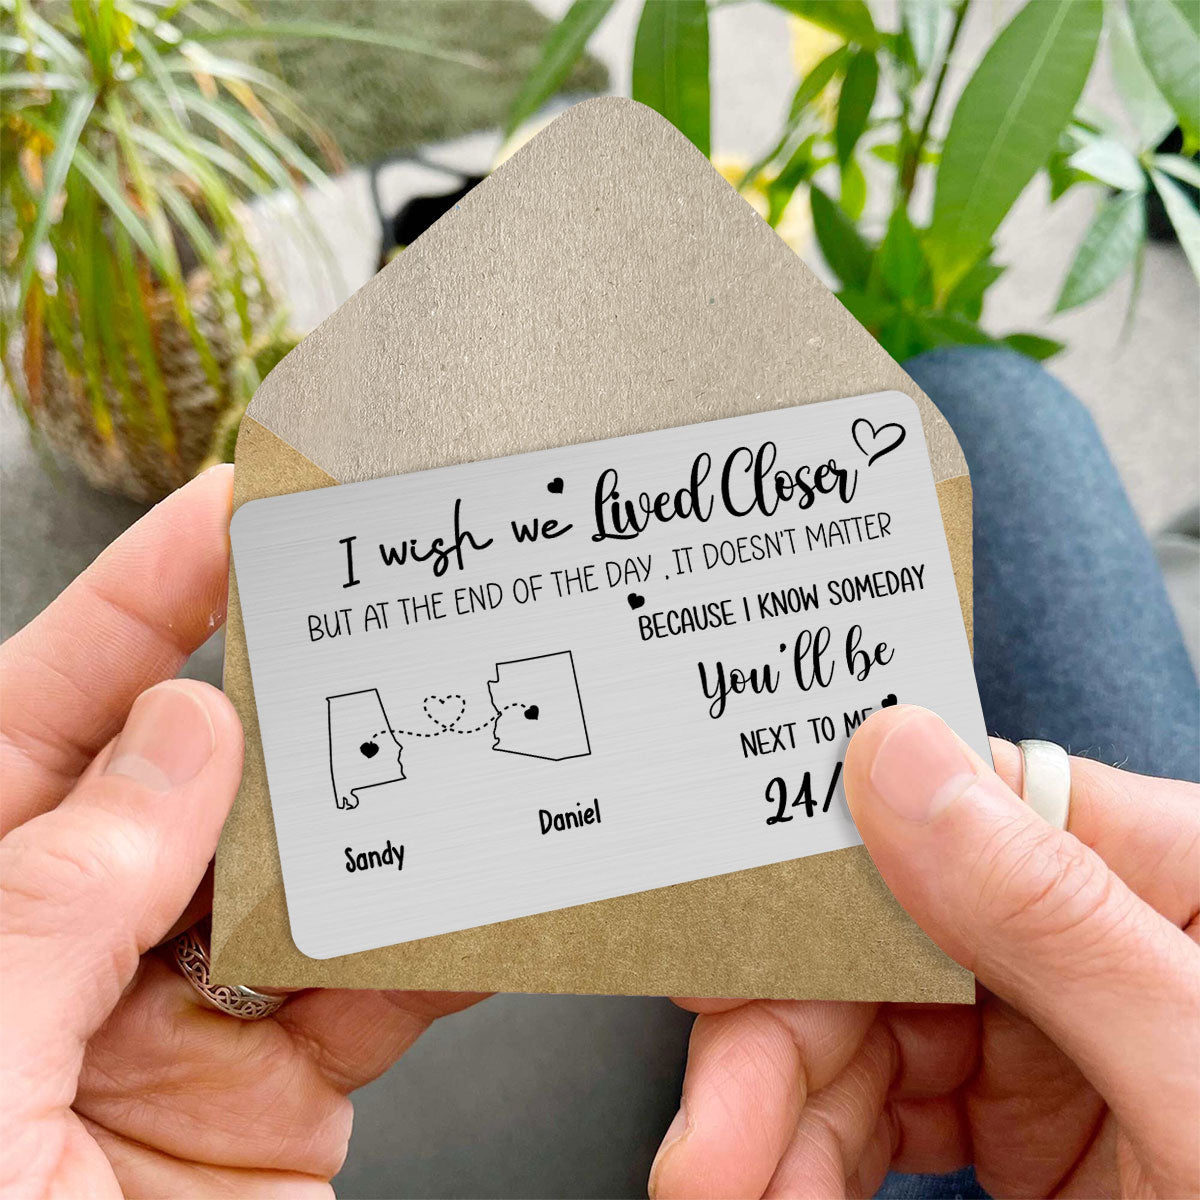 I wish we Lived Closer
BUT AT THE END OF THE DAY , IT DOESN'T MATTER
BECAUSE I KNOW SOMEDAY
You'll be
NEXT TO ME
24/
Sandy
Daniel